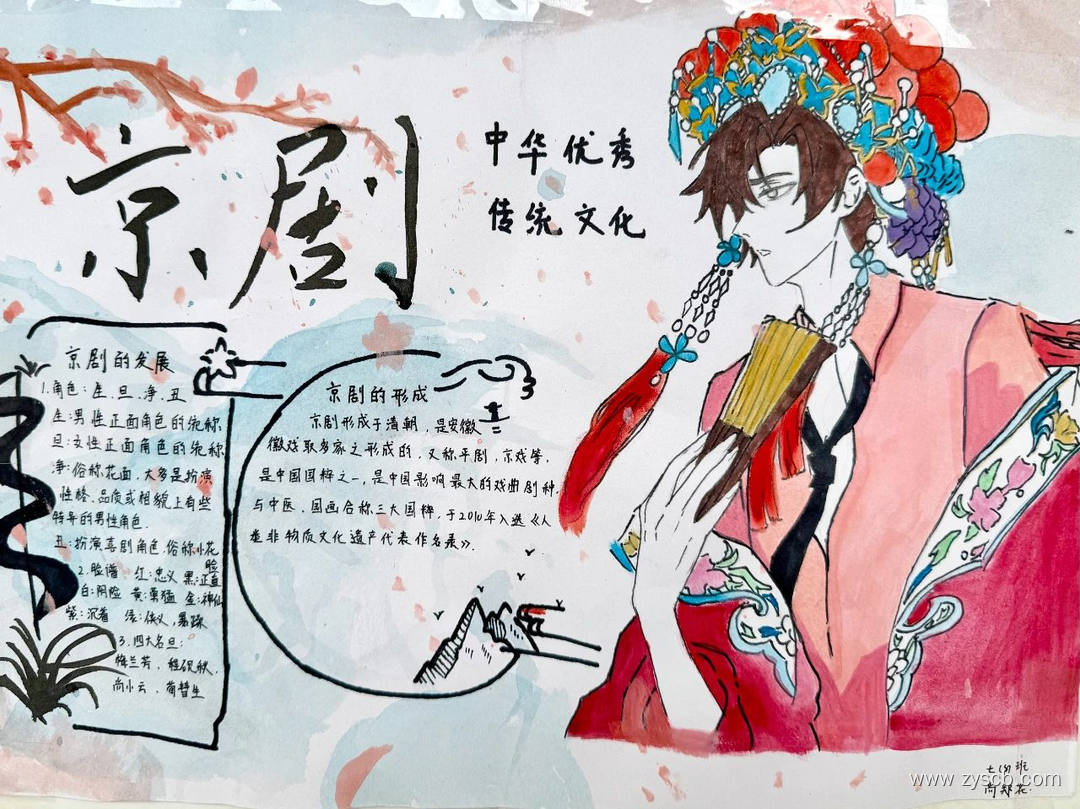 京剧
中华优秀
传统文化
京剧的发展
1.角色:生.旦.净.丑
生:男性正面角色的统称
旦:女性正面角色的统称
净:俗称花面,大多是扮演
性格、品质或相貌上有些
特异的男性角色.
丑:扮演喜剧角色.俗称小花
脸
2.脸谱 红:忠义 黑:正直
白:阴险 黄:勇猛 金:神仙
紫:沉着 绿:侠义,暴躁
3.四大名旦:
梅兰芳,程砚秋,
尚小云,荀慧生
京剧的形成
京剧形成于清朝,是安徽
徽戏取多家之形成的,又称平剧,京戏等,
是中国国粹之一,是中国影响最大的戏曲剧种,
与中医、国画合称三大国粹,于2010年入选《人
类非物质文化遗产代表作名录》.
班
www.zyscb.com